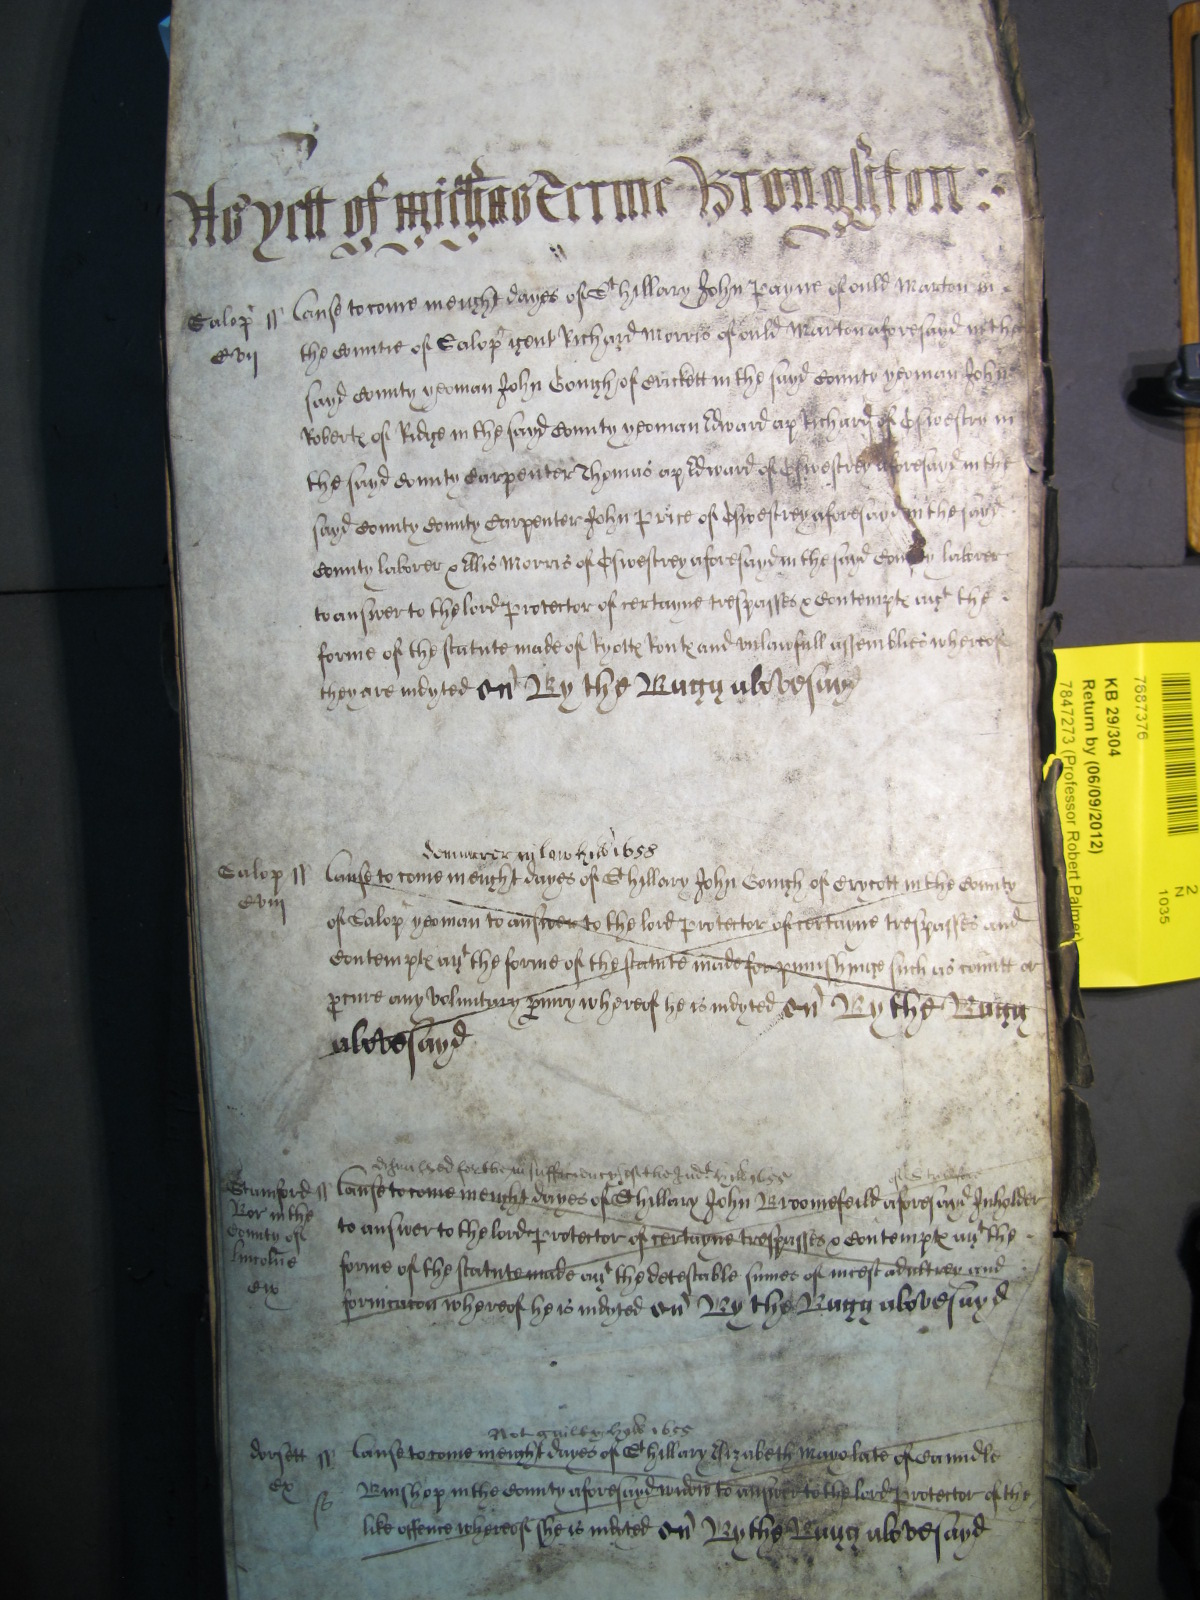 As yett of Michas Terme Broughton :
Salop ss Cause to come in eight dayes of St hillary John Payne of ould Marton in
cvii the Countie of Salop gent Richard Morris of ould Marton aforesayd in the
sayd County yeoman John Gough of Crickett in the sayd County yeoman John
Robertes of Ridge in the sayd County yeoman Edward ap Richard of Oswestry in
the sayd County Carpenter Thomas ap Edward of Oswestrey aforesayd in the
sayd County County Carpenter John Price of Oswestrey aforesayd in the sayd
County laborer & Ellis Morris of Oswestrey aforesayd in the sayd County laborer
to answer to the lord Protector of certayne trespasses & Contemptes agt the
forme of the statute made of Ryottes Routes and unlawfull assemblies whereof
they are indyted on By the Bagg abovesayd
demurrer in law 1655
Salop ss Cause to come in eight dayes of St hillary John Gough of Crycott in the County
cviii of Salop yeoman to answer to the lord Protector of certayne trespasses and
Contemptes agt the forme of the statute made for punishinge such as comitt or
pcure any voluntary piury whereof he is indyted on By the Bagg
abovesayd
discharged for the insufficiency of the Indt 1655
Stamford ss Cause to come in eight dayes of St hillary John Broomefeild aforesayd Inholder
Bor in the to answer to the lord Protector of certayne trespasses & Contemptes agt the
County of forme of the statute made agt the detestable sinnes of incest adultrey and
Lincolne fornicacon whereof he is indyted on By the Bagg abovesayd
cix
Not guilty 1655
dorsett ss Cause to come in eight dayes of St hillary Elizabeth Mayo late of Caundle
cx Binshop in the County aforesayd widow to answer to the lord Protector of the
like offence whereof she is indyted on By the Bagg abovesayd
2
N
1035
7687376
KB 29/304
Return by (06/09/2012)
7847273 (Professor Robert Palmer)